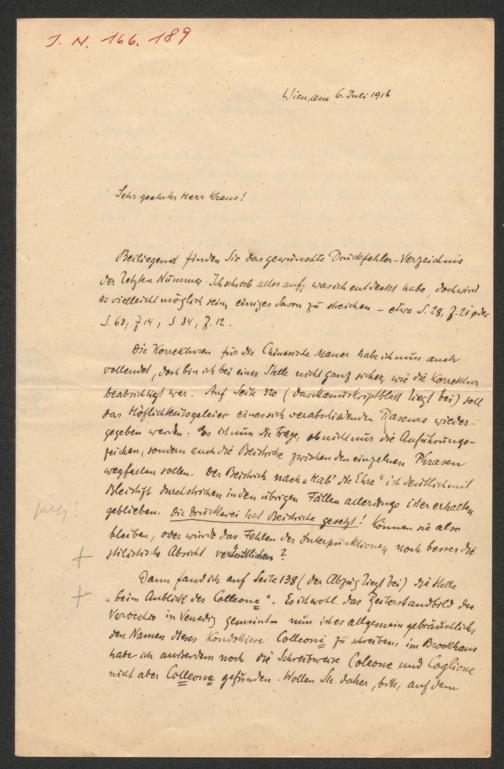 J. N. 166.189
Wien, am 6. Juli 1916
Sehr geehrter Herr Kraus!
Beiliegend finden Sie das gewünschte Druckfehler-Verzeichnis
der letzten Nummer. Ich schrieb alles auf, was ich entdeckt habe, doch wird
es vielleicht möglich sein, einiges davon zu streichen – etwa S. 28, Z. 21 oder
S. 68, Z. 14, S. 84, Z. 12.
Die Korrekturen für die Chinesische Mauer habe ich nun auch
vollendet, doch bin ich bei einer Stelle nicht ganz sicher, wie die Korrektur
beabsichtigt war. Auf Seite 320 (das Manuskriptblatt liegt bei) soll
das eines sich verabschiedenden wieder-
gegeben werden. Es ist nun die Frage, ob nicht nur die Anführungs-
zeichen, sondern auch die Beistriche zwischen den einzelnen Phrasen
wegfallen sollen. Der Beistrich nach „Hab' die Ehre" ist deutlich mit
Bleistift durchstrichen in den übrigen Fällen allerdings ist er erhalten
geblieben. Die Druckerei hat Beistriche gesetzt! Können sie also
bleiben, oder würde das Fehlen der Interpunktionen noch besser die
stilistische Absicht verdeutlichen?
Dann fand ich auf Seite 138 (der Abzug liegt bei) die Stelle
„beim Anblick des Colleone". Es ist wohl das Reiterstandbild des
Verocchio in Venedig gemeint – nun ist es allgemein gebräuchlich,
den Namen dieses Kondottiere Colleoni zu schreiben, im Brockhaus
habe ich ausserdem noch die Schreibweise Coleone und Coglione
nicht aber Colleone gefunden. Wollen Sie daher, bitte, auf dem